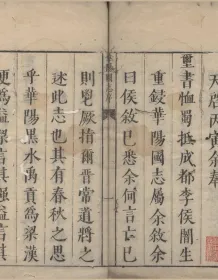 天啓丙寅余奉
璽書恤蜀抵成都李侯闇生
重鋟華陽國志屬余敘余
曰侯敘已悉余何言亡已
華陽國志序
則厥指爾晉常道將之
述此志也其有春秋之思
乎華陽黑水禹貢爲梁漢
更爲益言其益言其